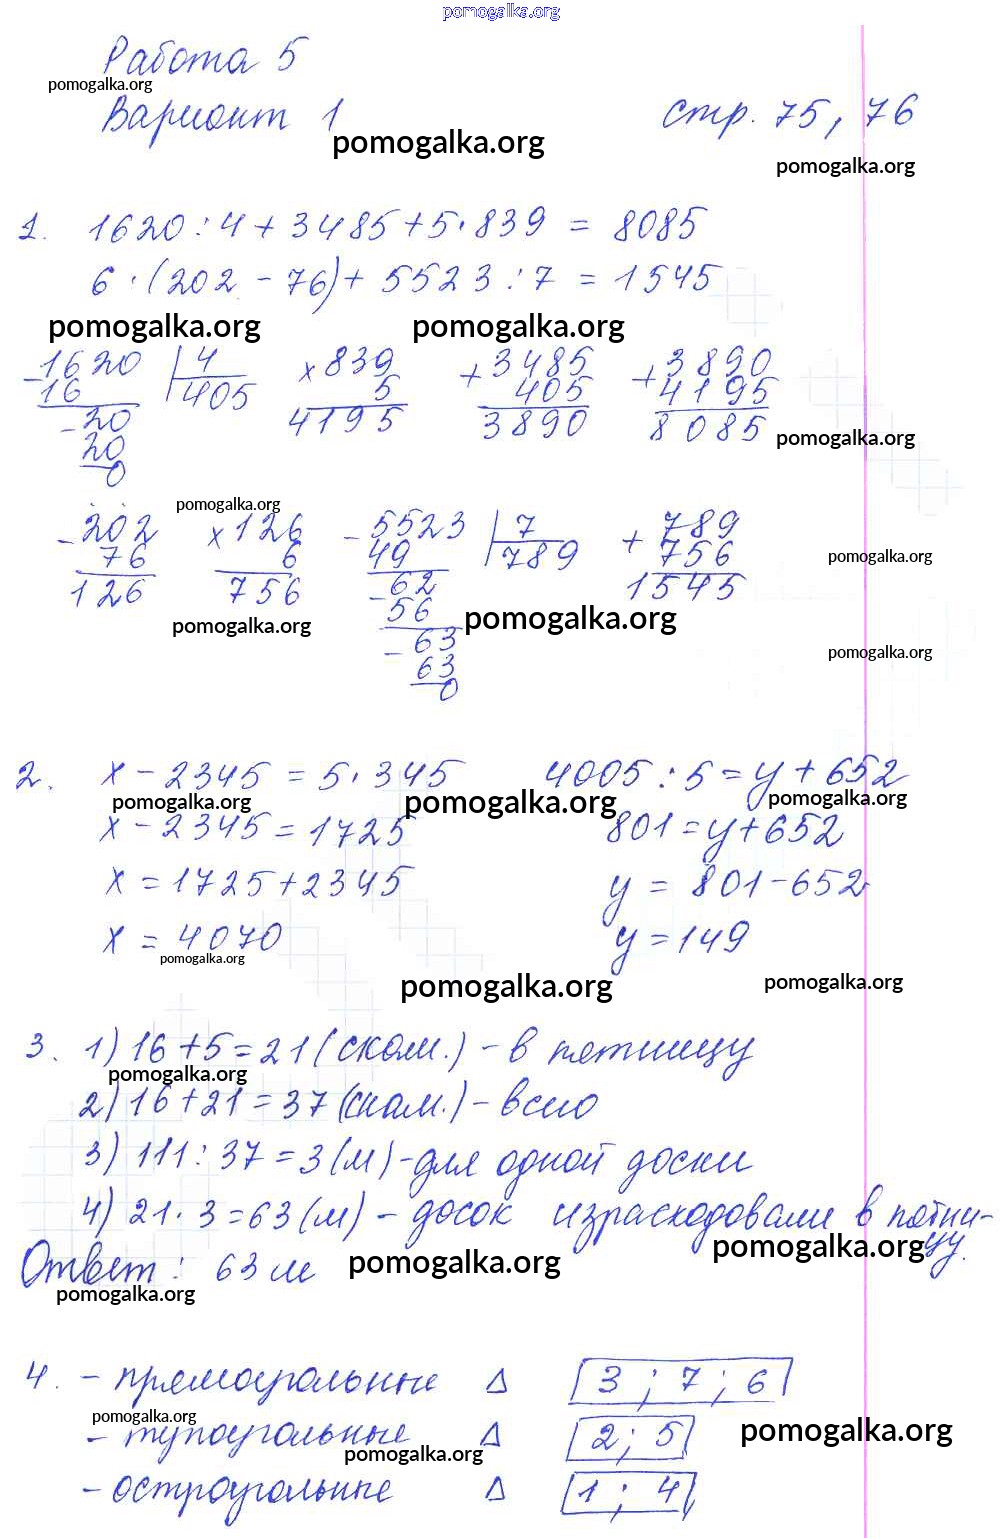 pomogalka.org
Работа 5
pomogalka.org
Вариант 1 стр. 75, 76
pomogalka.org
pomogalka.org
1. 1620 : 4 + 3485 + 5 · 839 = 8085
6 · (202 - 76) + 5523 : 7 = 1545
pomogalka.org pomogalka.org
- 1620 | 4 × 839 + 3485 + 3890
16 405 5 405 4195
- 20 4195 3890 8085
20 pomogalka.org
0
pomogalka.org
- 202 × 126 - 5523 | 7 + 789
76 6 49 789 756
pomogalka.org
126 756 - 62 1545
56
pomogalka.org pomogalka.org
- 63
pomogalka.org
63
0
2. x - 2345 = 5 · 345 4005 : 5 = y + 652
pomogalka.org pomogalka.org pomogalka.org
x - 2345 = 1725 801 = y + 652
x = 1725 + 2345 y = 801 - 652
x = 4070 y = 149
pomogalka.org
pomogalka.org pomogalka.org
3. 1) 16 + 5 = 21 (скам.) - в пятницу
pomogalka.org
2) 16 + 21 = 37 (скам.) - всего
3) 111 : 37 = 3 (м) - для одной доски
4) 21 · 3 = 63 (м) - досок израсходовали в пятни-
цу.
pomogalka.org
Ответ : 63 м
pomogalka.org
pomogalka.org
4. - прямоугольные Δ 3 ; 7 ; 6
pomogalka.org
- тупоугольные Δ 2 ; 5
pomogalka.org
pomogalka.org
- остроугольные Δ 1 ; 4